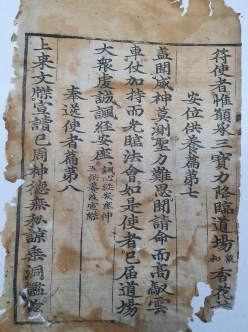 符使者惟願承三寶力降臨道場 衆和 香花
安位供養篇第七
盖聞威神莫測聖力難思聞請命而高馭雲
車仗加持而允臨法會如是使者已届道場
大衆虔誠諷經安座 誦心經 五供養後宣牒
奉送使者篇第八
上來文牒宣讀已周神德無私諒垂洞鑑